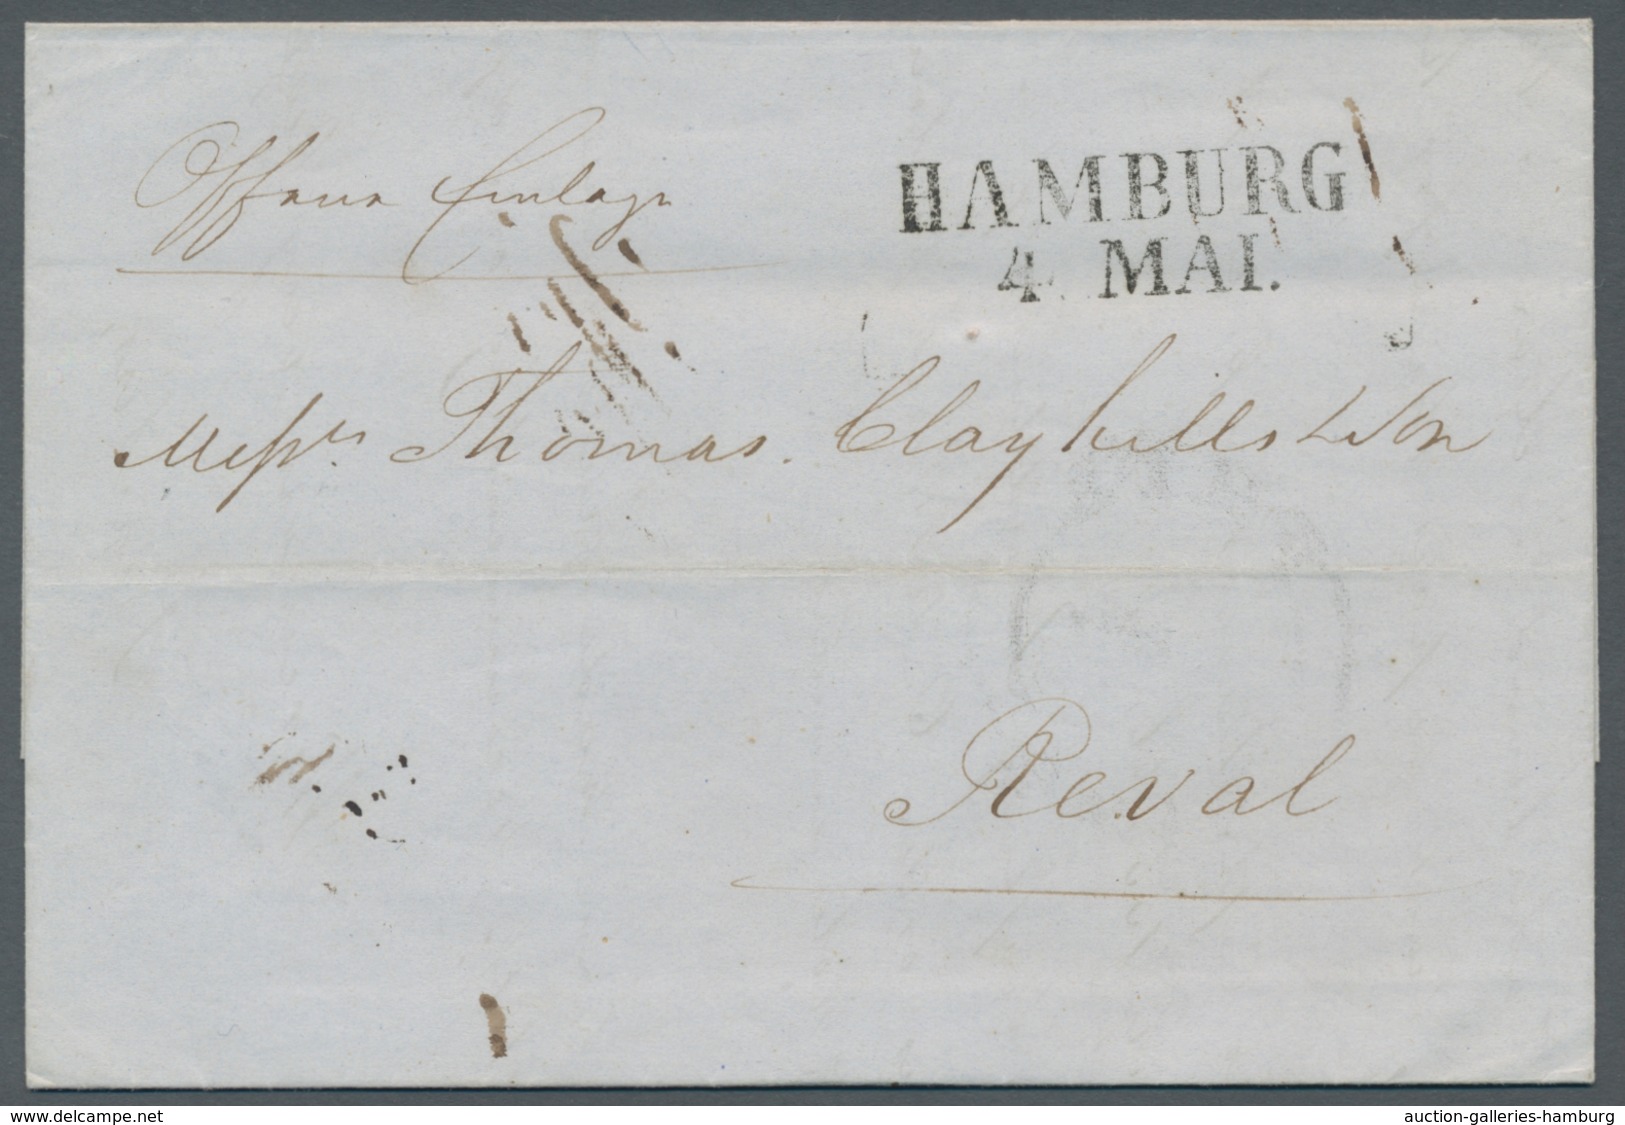 Offene Einlage
HAMBURG
4. MAI.
Messrs. Thomas Clayhills & Son
Reval
www.delcampe.net
auction-galleries-hamburg